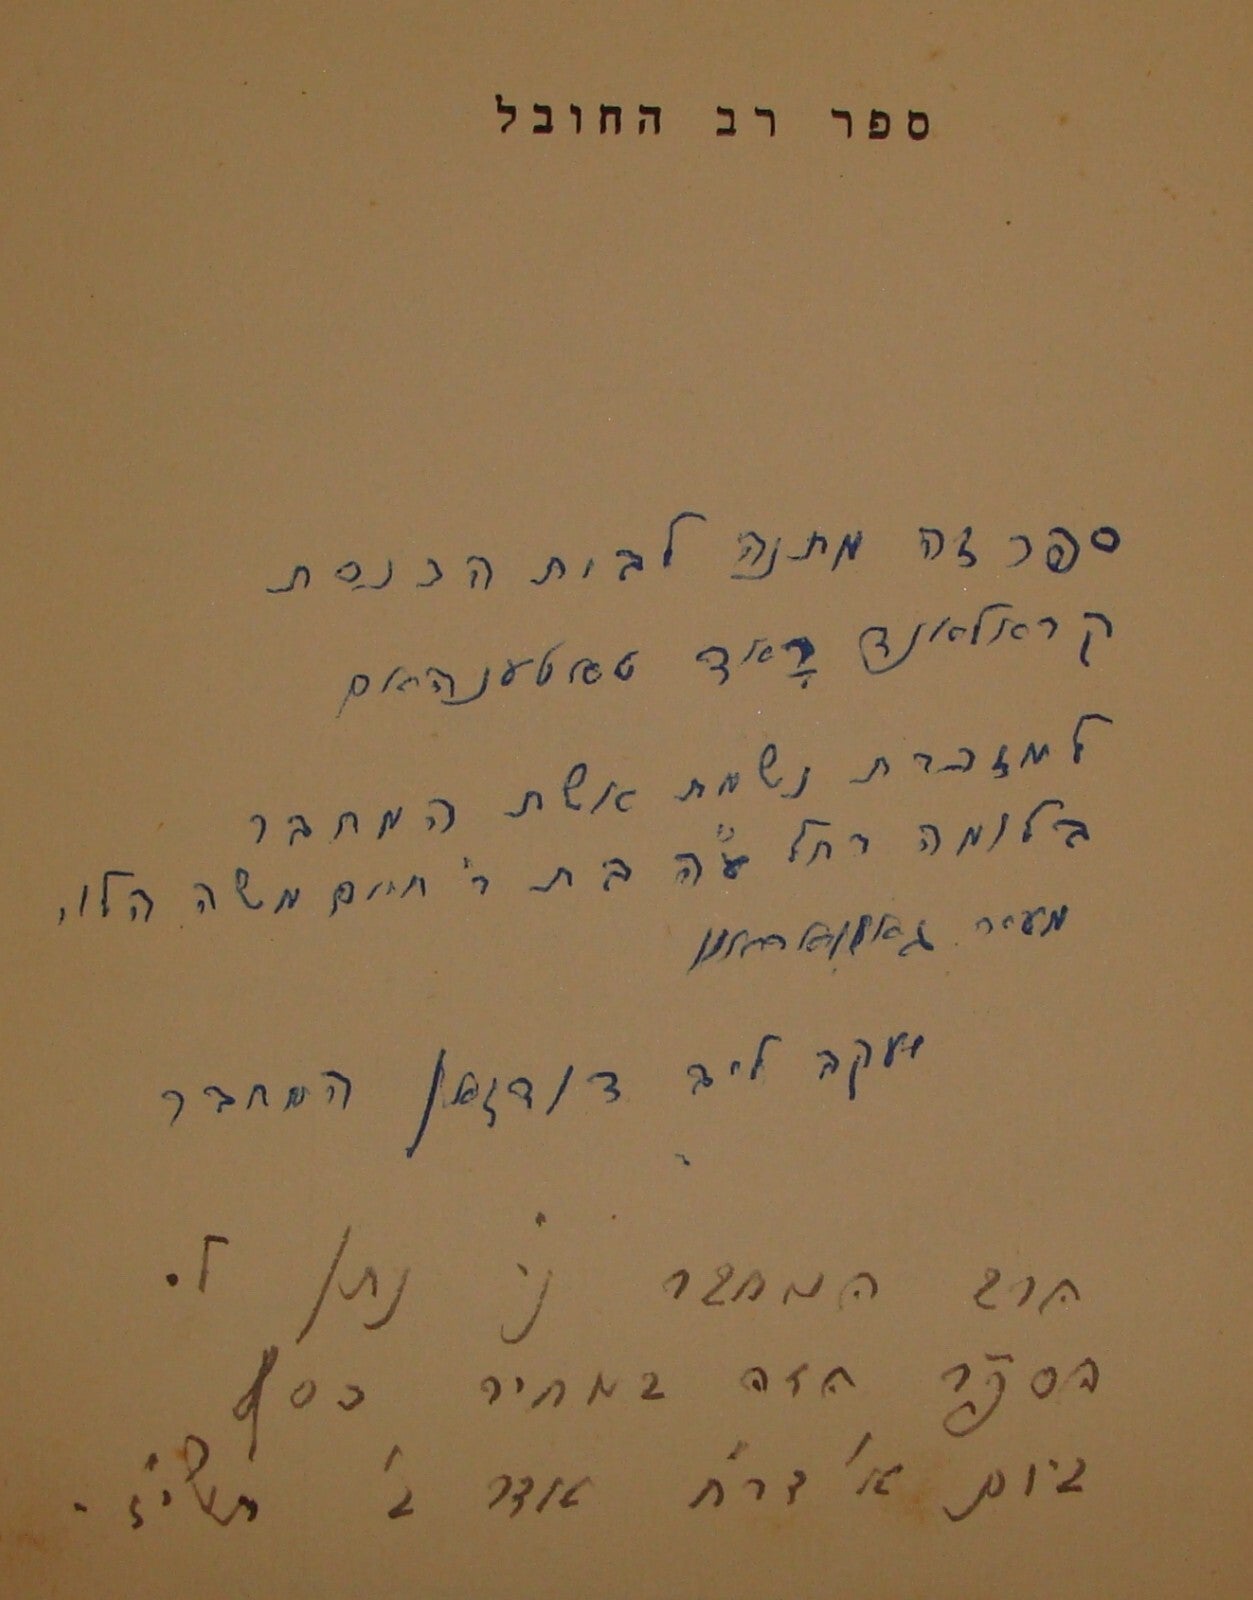 ספר רב החובל
ספר זה מתנה לבית הכנסת
קראולאנד ראָוד טאטענהאם
למזכרת נשמת אשת המחבר
בלומה רחל ע"ה בת ר' חיים משה הלוי.
מעיר
יעקב לייב דודזאן המחבר
הרב המחבר ני' נתן ל.
הספר הזה במחיר כסף
ביום א' דר"ח אדר ב' תשי"ז -